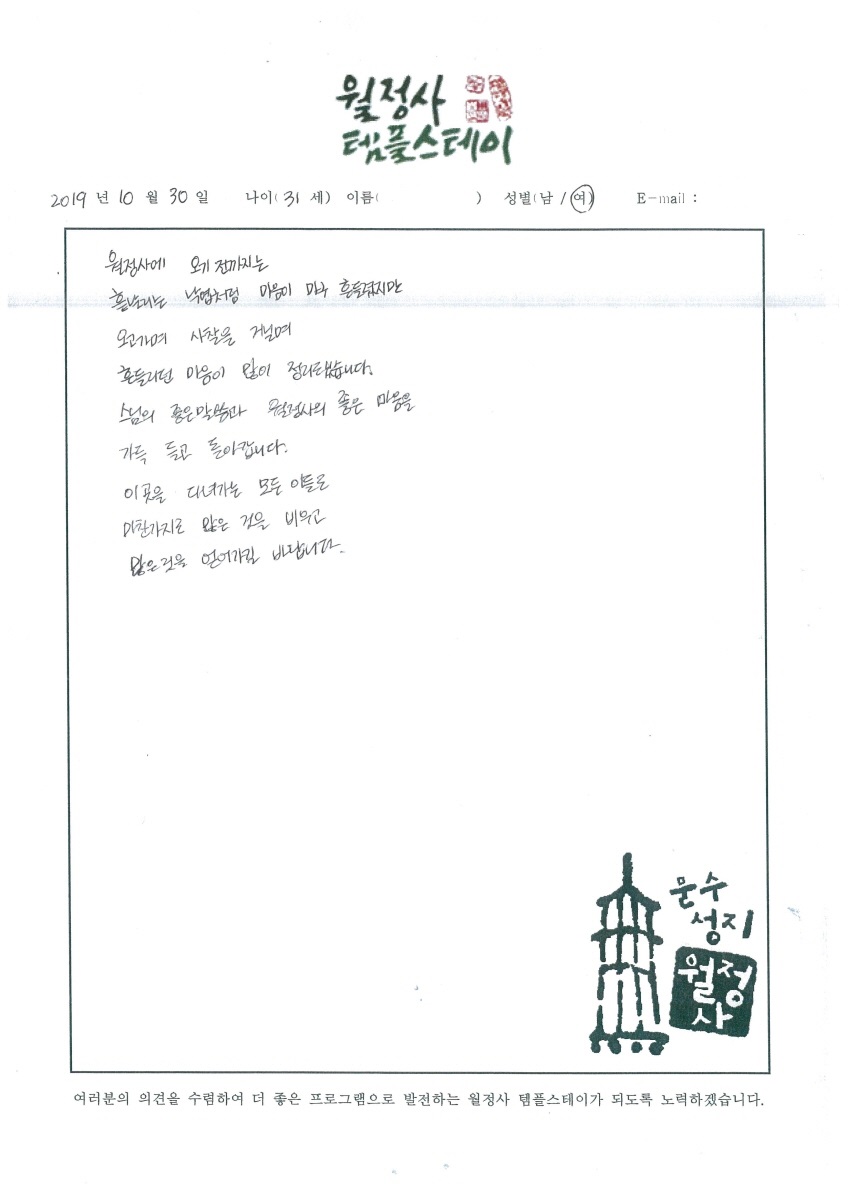 월정사
템플스테이
2019 년 10 월 30 일 나이( 31 세) 이름( ) 성별(남 / 여) E-mail :
월정사에 오기 전까지는
흩날리는 낙엽처럼 마음이 마구 흔들렸지만
오고가며 사찰을 거닐며
흔들리던 마음이 많이 정리됐습니다.
스님의 좋은말씀과 월정사의 좋은 마음을
가득 들고 돌아갑니다.
이곳을 다녀가는 모든 이들도
마찬가지로 많은 것을 비우고
많은것을 얻어가길 바랍니다.
문수
성지
월정
사
여러분의 의견을 수렴하여 더 좋은 프로그램으로 발전하는 월정사 템플스테이가 되도록 노력하겠습니다.